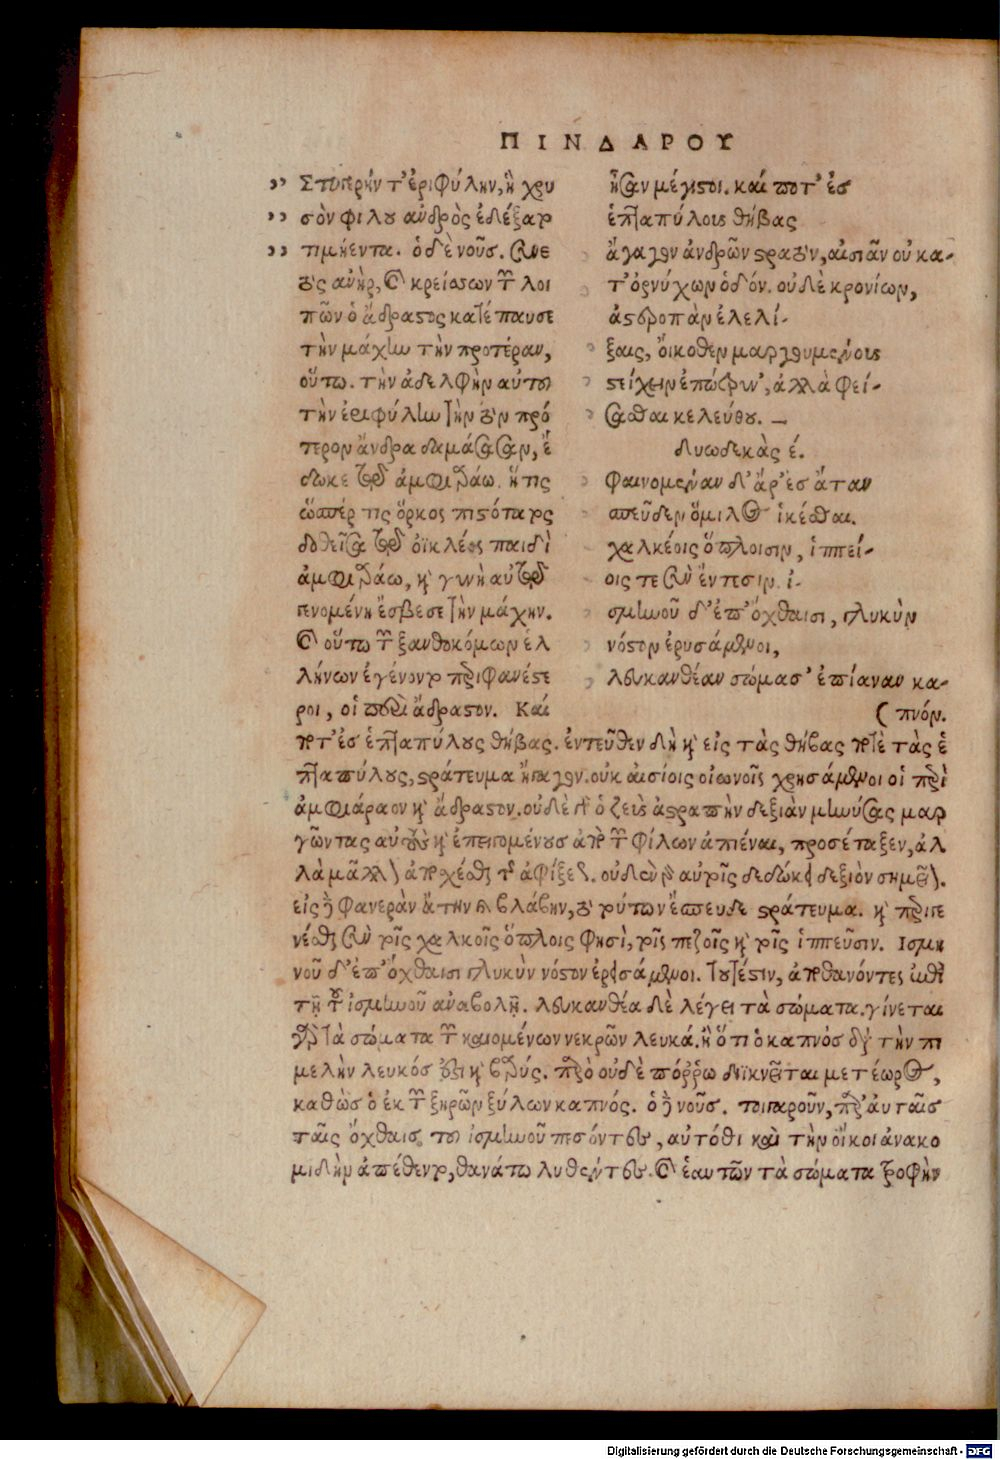 ΠΙΝΔΑΡΟΥ
,, Στυγερήν τ' ἐριφύλην, ἣ χρυ
,, σὸν φίλου ἀνδρὸς ἐδέξατο
,, τιμήεντα. ὁ δὲ νοῦς. συνε
τὸς ἀνὴρ, καὶ κρείσσων τῶν λοι
πῶν ὁ ἄδραστος κατέπαυσε
τὴν μάχην τὴν προτέραν,
οὕτω. τὴν ἀδελφὴν αὐτοῦ
τὴν ἐριφύλην τὴν τὸν πρό
τερον ἄνδρα δαμάσασαν, ἔ
δωκε τῷ ἀμφιαράω. ἥτις
ὥσπέρ τις ὅρκος πιστότατος
δοθεῖσα τῷ οἰκλέος παιδὶ
ἀμφιαράω, καὶ γυνὴ αὐτῷ
γενομένη ἔσβεσε τὴν μάχην.
καὶ οὕτω τῶν ξανθοκόμων ἑλ
λήνων ἐγένοντο περιφανέστε
ροι, οἱ περὶ ἄδραστον. Καί
ἦσαν μέγιστοι. καί ποτ' ἐσ
ἑπταπύλους θήβας
ἄγαγον ἀνδρῶν στρατὸν, αἰσιᾶν οὐ κα-
τ' ὀρνίχων ὁδόν. οὐδὲ κρονίων,
ἀστροπὰν ἐλελί-
ξαις, οἴκοθεν μαργουμένους
στείχειν ἐπώτρυν', ἀλλὰ φεί-
σασθαι κελεύθου. –
δυωδεκὰς έ.
Φαινομέναν δ' ἄρ' ἐσ ἄταν
σπεῦδεν ὅμιλος ἱκέσθαι.
χαλκέοις ὅπλοισιν, ἱππεί-
οις τε σὺν ἔντεσιν. ἰ-
σμηνοῦ δ' ἐπ' ὄχθαισι, γλυκὺν
νόστον ἐρυσάμενοι,
λευκανθέαν σώμασ' ἐπίαναν κα-
(πνόν.
ποτ' ἐς ἑπταπύλους θήβας. ἐντεῦθεν δὴ καὶ εἰς τὰς θήβας ποτὲ τὰς ἑ
πταπύλους, στράτευμα ἤγαγον. οὐκ αἰσίοις οἰωνοῖς χρησάμενοι οἱ περὶ
ἀμφιάραον καὶ ἄδραστον. οὐδὲ γὰρ ὁ ζεὺς ἀστραπὴν δεξιὰν μηνύσας μαρ
γῶντας αὐτοὺς καὶ ἐπειγομένους ἀπὸ τῶν φίλων ἀπιέναι, προσέταξεν, ἀλ
λὰ μᾶλλον ἀποσχέσθαι τῆς ἀφίξεως. οὐδὲν γὰρ αὐτοῖς δεδώκει δεξιὸν σημεῖον.
εἰς δὲ φανερὰν ἄτην καὶ βλάβην, τὸ τούτων ἔσπευδε στράτευμα. καὶ περιγε
νέσθαι σὺν τοῖς χαλκοῖς ὅπλοις φησὶ, τοῖς πεζοῖς καὶ τοῖς ἱππεῦσιν. Ισμη
νοῦ δ' ἐπ' ὄχθαισι γλυκὺν νόστον ἐρυσάμενοι. τουτέστιν, ἀποθανόντες ἐπὶ
τῇ τοῦ ἰσμηνοῦ ἀναβολῇ. λευκανθέα δὲ λέγει τὰ σώματα. γίνεται
γὰρ τὰ σώματα τῶν καιομένων νεκρῶν λευκά. ἢ ὅτι ὁ καπνὸσ διὰ τὴν πι
μελὴν λευκόσ ἐστι καὶ βραχύς. παρὸ οὐδὲ πόῤῥω διϊκνεῖται μετέωρος,
καθὼσ ὁ ἐκ τῶν ξηρῶν ξύλων καπνός. ὁ δὲ νοῦς. τοιγαροῦν, παρ' αὐταῖσ
ταῖς ὄχθαις τοῦ ἰσμηνοῦ πεσόντες, αὐτόθι καὶ τὴν οἴκοι ἀνακο
μιδὴν ἀπέθεντο, θανάτω λυθέντες. καὶ ἑαυτῶν τὰ σώματα τροφὴν
Digitalisierung gefördert durch die Deutsche Forschungsgemeinschaft - DFG